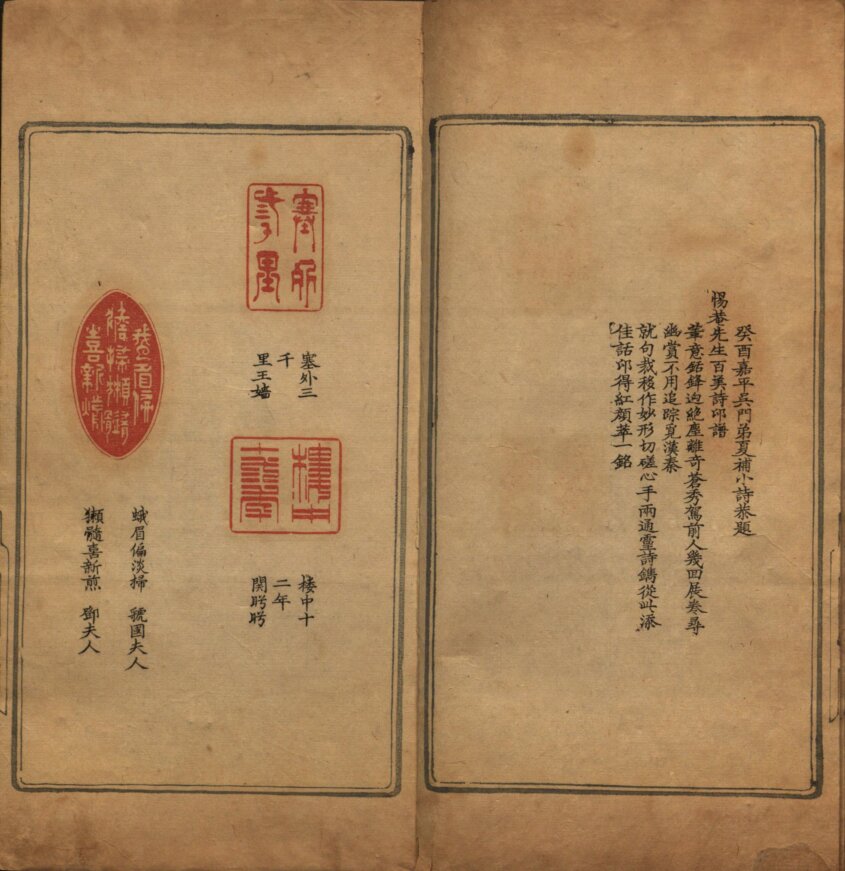 癸酉嘉平吳門弟夏補小詩恭題
惕菴先生百美詩印譜
筆意銛鋒迥絕塵離奇蒼秀駕前人幾回展卷尋
幽賞不用追踪覓漢秦
就句裁移作妙形切磋心手兩通靈詩鐫從此添
佳話印得紅顏萃一銘
塞外三
千
里王嬙
楼中十
二年
関盻盻
蛾眉偏淡掃 虢國夫人
獺髓喜新煎 鄧夫人